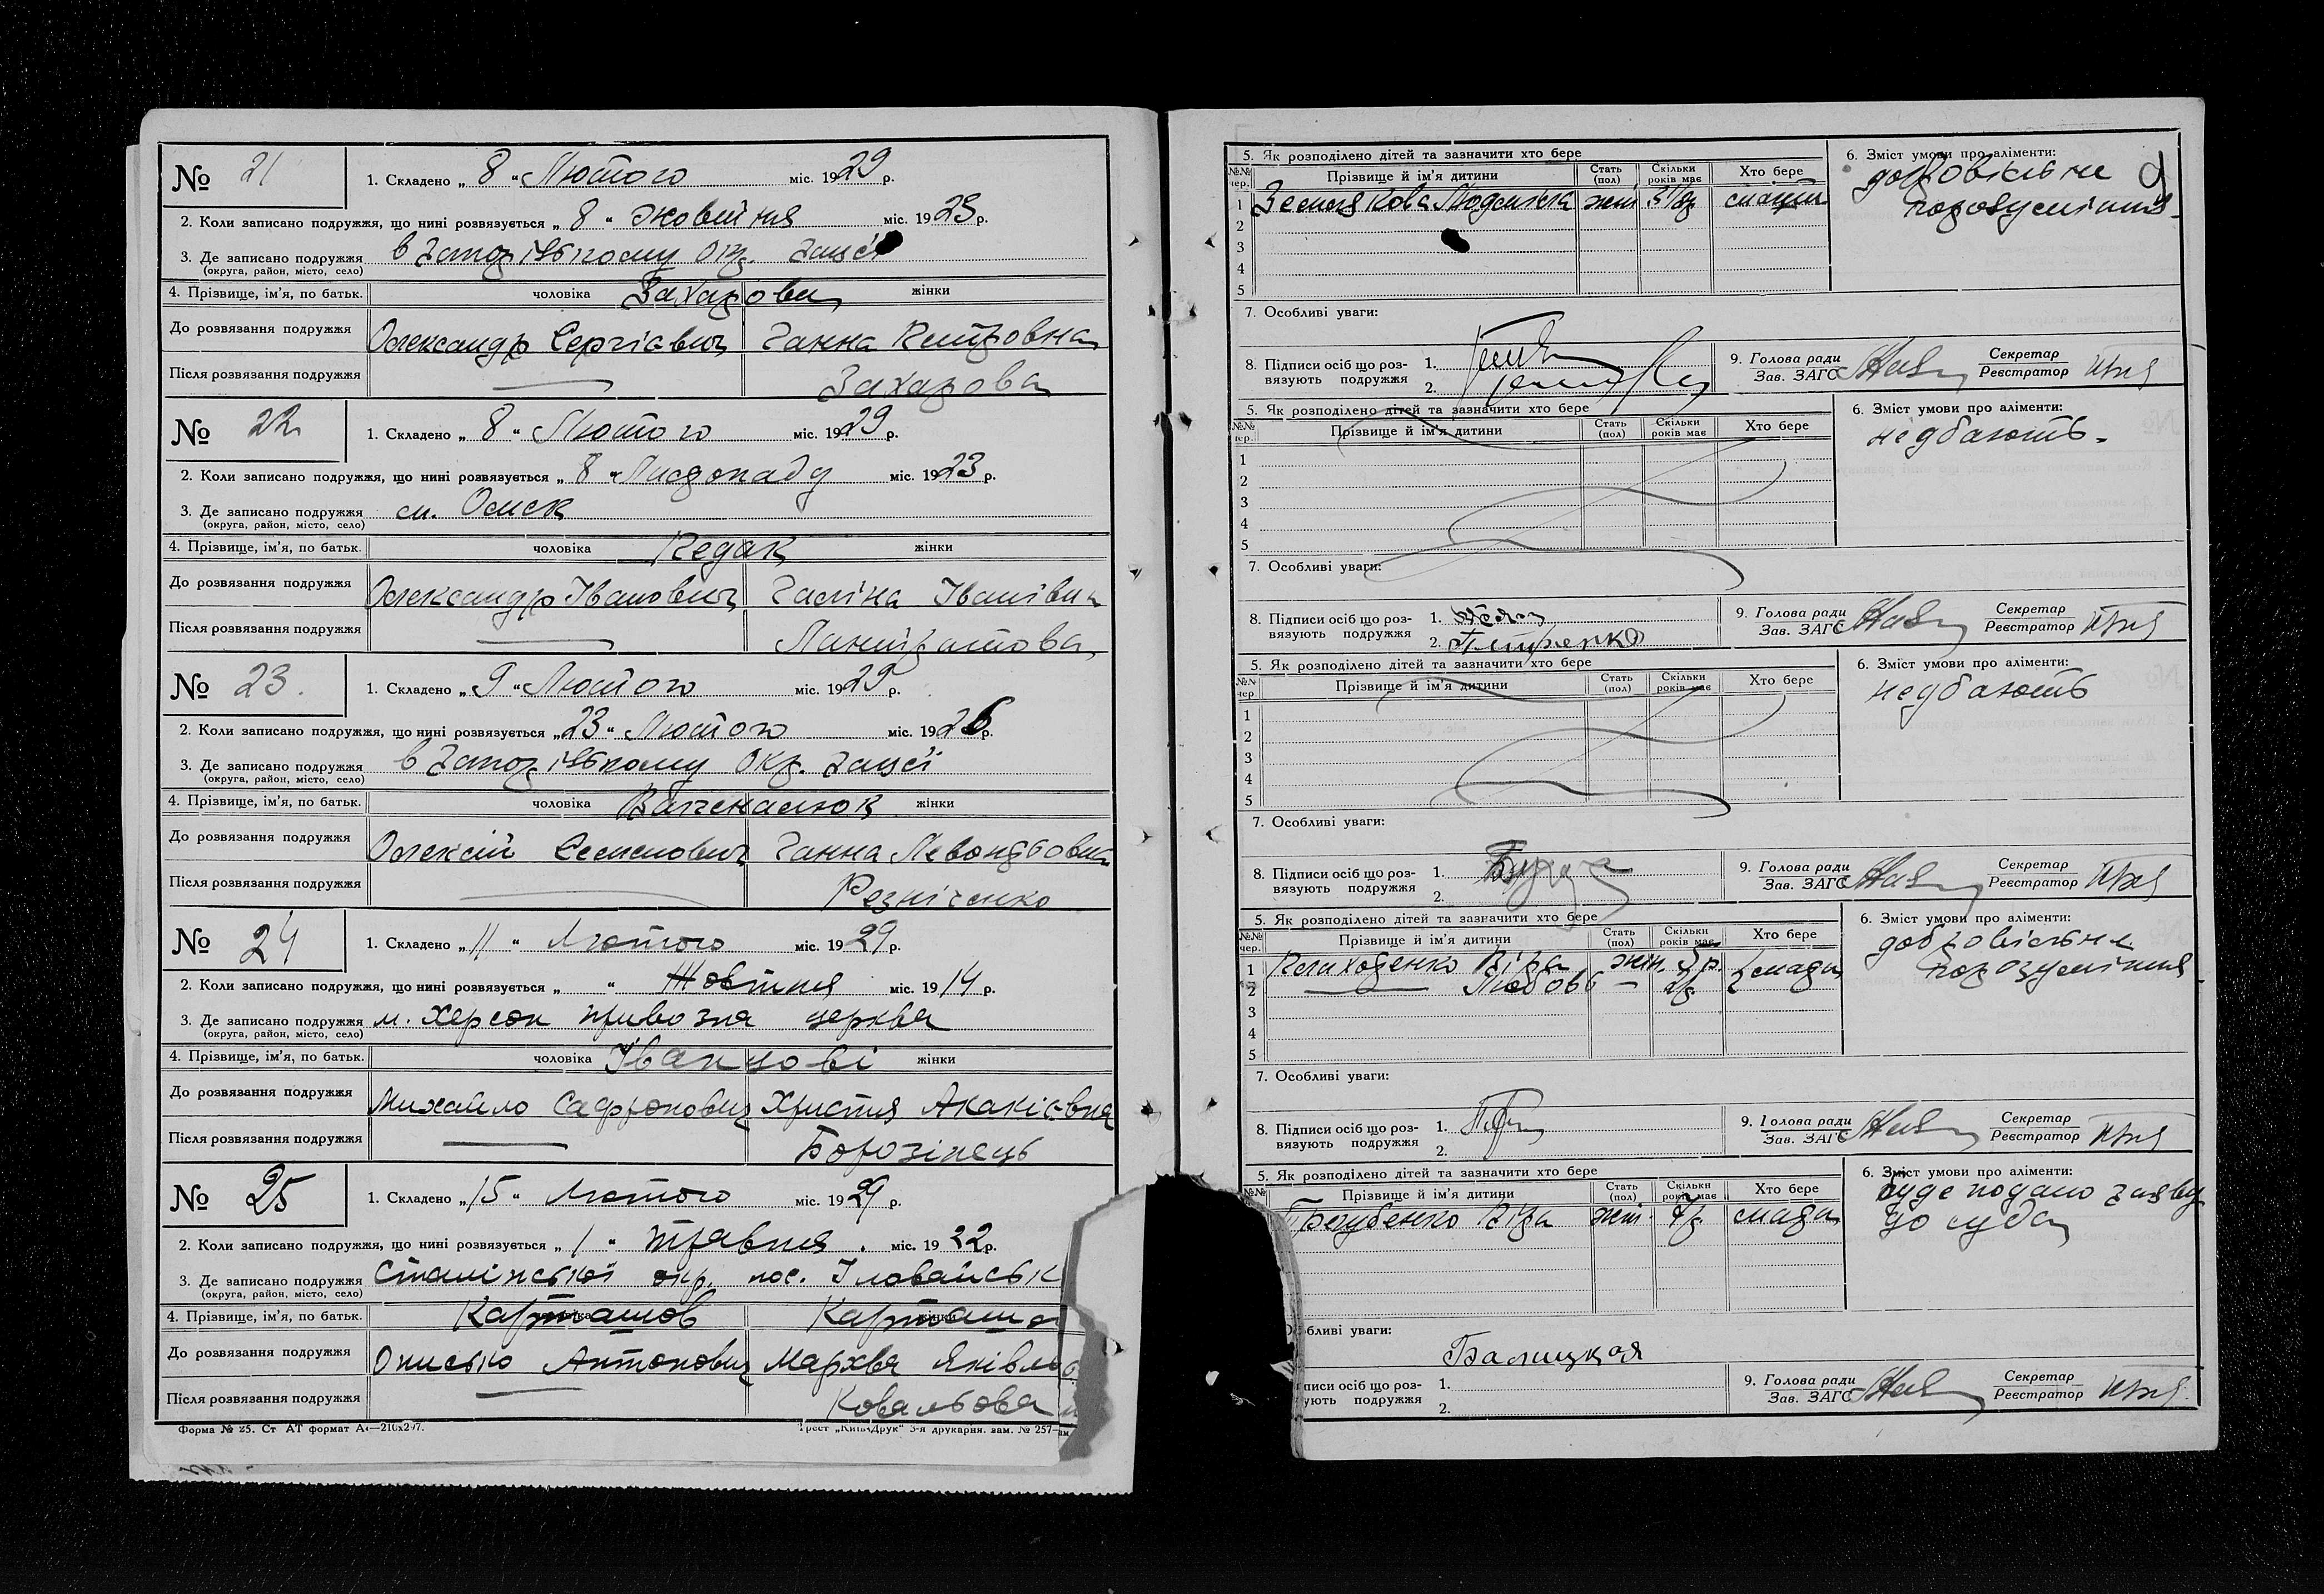 № 21
1. Складено „ 8 “ Лютого міс. 1929 р.
2. Коли записано подружжя, що нині розвязується „ 8 “ Жовтня міс. 1923 р.
3. Де записано подружжя в Запорізькому Окр. Загсі
(округа, район, місто, село)
4. Прізвище, ім’я, по батьк. чоловіка Захарова жінки
До розвязання подружжя Олександр Сергіович Ганна Петровна
Після розвязання подружжя — Захарова
№ 22
1. Складено „ 8 “ Лютого міс. 1929 р.
2. Коли записано подружжя, що нині розвязується „ 8 “ Листопаду міс. 1923 р.
3. Де записано подружжя м. Омск
(округа, район, місто, село)
4. Прізвище, ім’я, по батьк. чоловіка Редак жінки
До розвязання подружжя Олександр Іванович Галіна Іванівна
Після розвязання подружжя — Панкратова
№ 23.
1. Складено „ 9 “ Лютого міс. 1929 р.
2. Коли записано подружжя, що нині розвязується „ 23 “ Лютого міс. 1926 р.
3. Де записано подружжя в Запорізькому Окр. Загсі
(округа, район, місто, село)
4. Прізвище, ім’я, по батьк. чоловіка жінки
До розвязання подружжя Олексій Семенович Ганна
Після розвязання подружжя — Резніченко
№ 24
1. Складено „ 11 “ Лютого міс. 1929 р.
2. Коли записано подружжя, що нині розвязується „ “ Жовтня міс. 1914 р.
3. Де записано подружжя м. Херсон привозна церква
(округа, район, місто, село)
4. Прізвище, ім’я, по батьк. чоловіка Іванцові жінки
До розвязання подружжя Михайло Сафронович Христя Акакієвна
Після розвязання подружжя — Борозінець
№ 25
1. Складено „ 15 “ Лютого міс. 1929 р.
2. Коли записано подружжя, що нині розвязується „ 1 “ травня. міс. 1922 р.
3. Де записано подружжя Сталінської окр. пос. Іловайськ
(округа, район, місто, село)
4. Прізвище, ім’я, по батьк. Карташов Карташо
До розвязання подружжя Онисько Антонович Мархва Яківл
Після розвязання подружжя — Ковальова
Форма № 25. Ст АТ формат А4—210х297. Трест „Київ-Друк“ 3-я друкарня. зам. № 257
5. Як розподілено дітей та зазначити хто бере 6. Зміст умови про аліменти:
№№ чер. Прізвище й ім’я дитини Стать (пол) Скільки років має Хто бере добровільне
1 Людміла жін мати порозуміння
2
3
4
5
7. Особливі уваги:
8. Підписи осіб що роз- 1. 9. Голова ради Секретар
вязують подружжя 2. Зав. ЗАГС Реєстратор
5. Як розподілено дітей та зазначити хто бере 6. Зміст умови про аліменти:
№№ чер. Прізвище й ім’я дитини Стать (пол) Скільки років має Хто бере недбають.
1
2
3
4
5
7. Особливі уваги:
8. Підписи осіб що роз- 1. 9. Голова ради Секретар
вязують подружжя 2. Зав. ЗАГС Реєстратор
5. Як розподілено дітей та зазначити хто бере 6. Зміст умови про аліменти:
№№ чер. Прізвище й ім’я дитини Стать (пол) Скільки років має Хто бере недбають
1
2
3
4
5
7. Особливі уваги:
8. Підписи осіб що роз- 1. 9. Голова ради Секретар
вязують подружжя 2. Зав. ЗАГС Реєстратор
5. Як розподілено дітей та зазначити хто бере 6. Зміст умови про аліменти:
№№ чер. Прізвище й ім’я дитини Стать (пол) Скільки років має Хто бере добровільне
1 Віра жін. 5 р. мати порозуміння
2 — Любовь — 2 р.
3
4
5
7. Особливі уваги:
8. Підписи осіб що роз- 1. 9. Голова ради Секретар
вязують подружжя 2. Зав. ЗАГС Реєстратор
5. Як розподілено дітей та зазначити хто бере 6. Зміст умови про аліменти:
№№ Прізвище й ім’я дитини Стать (пол) Скільки років має Хто бере буде подано заяву
Віра жін. мати до суда
обливі уваги:
Балицкая
писи осіб що роз- 1. 9. Голова ради Секретар
ують подружжя 2. Зав. ЗАГС Реєстратор